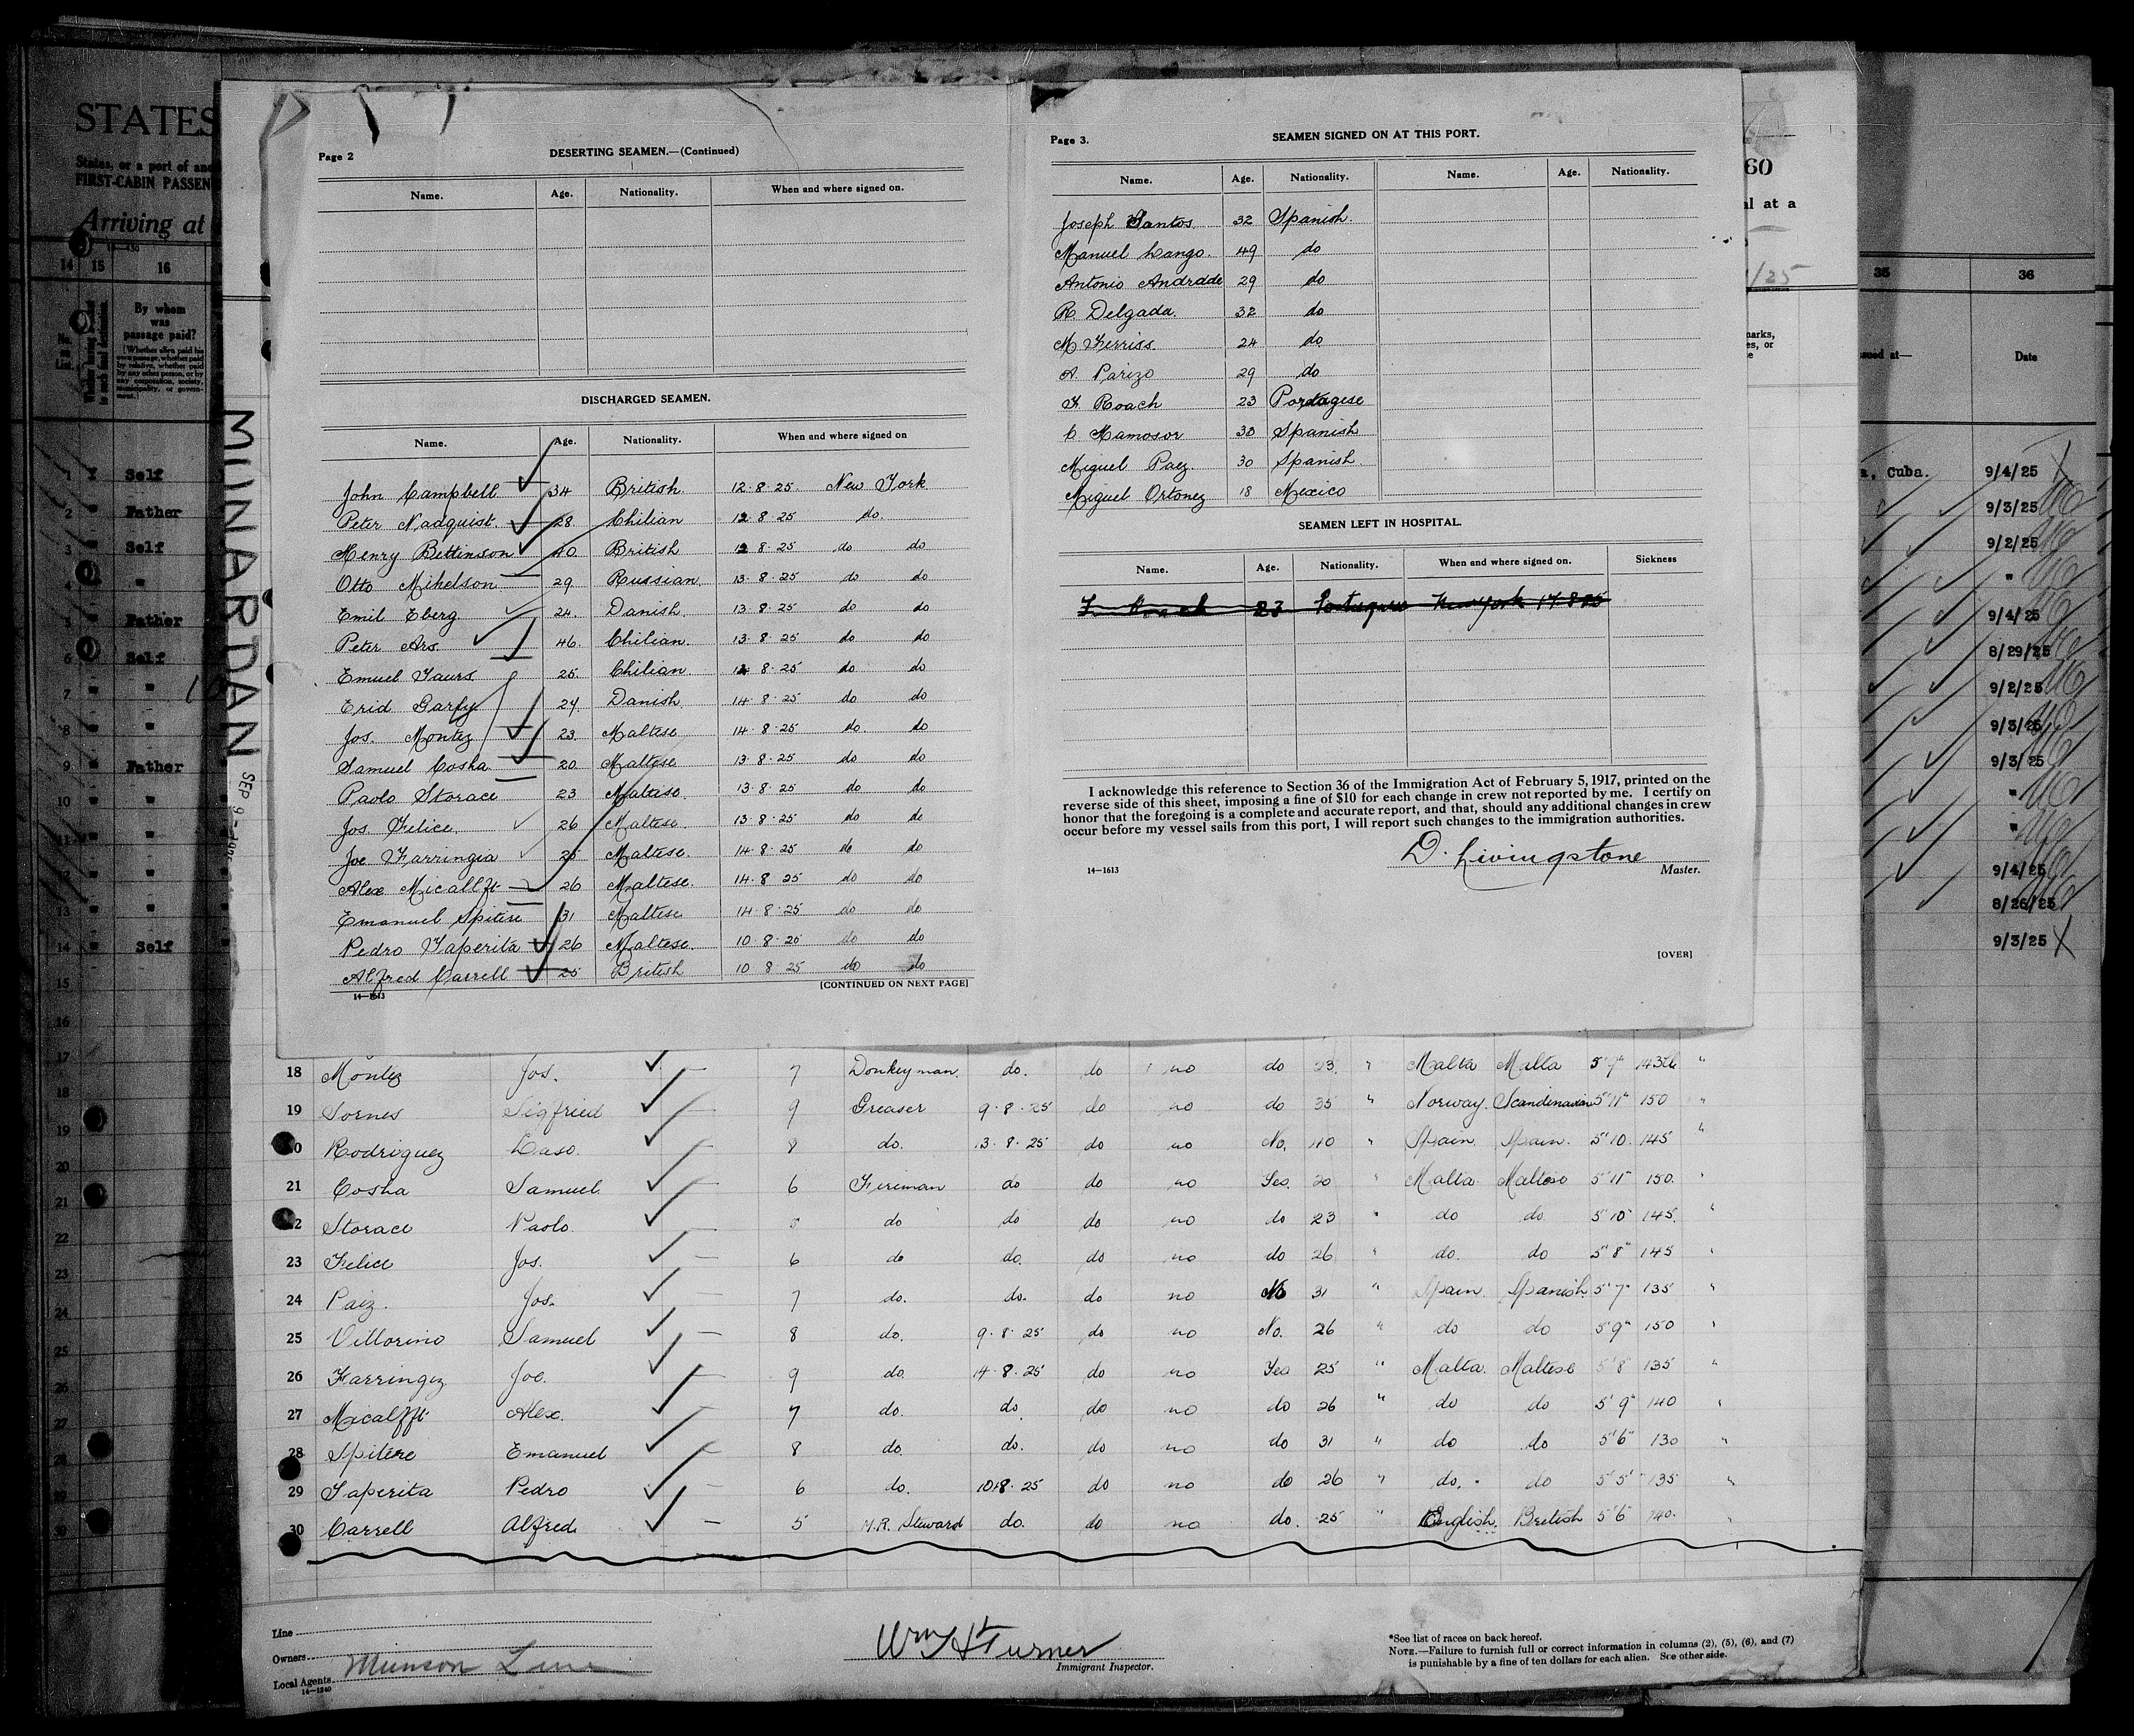 STATES
States, or a port of and
FIRST-CABIN PASSEN
Arriving at
14 15 16
By whom
was
passage paid?
1 Self
2 Father
3 Self
4 "
5 Father
6 Self
7 "
8 "
9 Father
10 "
11 "
12 "
13 "
14 Self
15
16
17
18
19
20
21
22
23
24
25
26
27
28
29
30
MUNARDAN
SEP 9-
Page 2
DESERTING SEAMEN.—(Continued)
Name. Age. Nationality. When and where signed on.
DISCHARGED SEAMEN.
Name. Age. Nationality. When and where signed on
John Campbell 34 British 12·8·25 New York
Peter Nadquist. 28. Chilian 12 8·25 do.
Henry Bettinson 40. British 12 8·25 do do
Otto Mihelson 29. Russian. 13·8·25 do do
Emil Eberg 24. Danish. 13·8·25 do do
Peter Ars 46. Chilian. 13·8·25 do do
Emuel Taurs 25. Chilian 8·25 do do
Erid Garfy 24 Danish 14·8·25 do do
Jos. Montez 23. Maltese 14·8·25 do do
Samuel Cosha 20. Maltese 13·8·25 do do
Paolo Storace 23 Maltase 13·8·25 do do
Jos Felice. 26 Maltese. 13·8·25 do do
Joe Farringia 25 Maltese. 14·8·25 do do
Alex Micallft 26 Maltese. 14·8·25 do do
Emanuel Spitere 31 Maltese 14·8·25 do do
Pedro Taperita 26 Maltese. 10·8·25 do do
Alfred Carrell 25 British 10 8 25 do do
14—1613 [CONTINUED ON NEXT PAGE]
Page 3.
SEAMEN SIGNED ON AT THIS PORT.
Name. Age. Nationality. Name. Age. Nationality.
Joseph Santos 32 Spanish.
Manuel Lango. 49 do
Antonio Andrade 29 do
R. Delgada. 32 do
M Ferriss 24 do
A. Parizo 29 do
F. Roach 23 Portugese
C. Mamosor 30 Spanish
Miguel Paez. 30 Spanish.
Miguel Ortonez 18 Mexico
SEAMEN LEFT IN HOSPITAL.
Name. Age. Nationality. When and where signed on. Sickness
F Roach 23 Portuguese New York 17 8 25
I acknowledge this reference to Section 36 of the Immigration Act of February 5, 1917, printed on the
reverse side of this sheet, imposing a fine of $10 for each change in crew not reported by me. I certify on
honor that the foregoing is a complete and accurate report, and that, should any additional changes in crew
occur before my vessel sails from this port, I will report such changes to the immigration authorities.
D. Livingstone
14—1613 Master.
[OVER]
60
al at a
/25
marks,
es, or
e
35 36
sued at— Date
a, Cuba. 9/4/25
9/3/25
9/2/25
"
9/4/25
8/29/25
9/2/25
9/3/25
9/3/25
"
"
9/4/25
8/26/25
9/3/25
18 Montez Jos. 7 Donkeyman. do. do no do 23. " Malta Malta 5'7" 143lb "
19 Sornes Sigfried 9 Greaser 9·8·25 do no do 35 " Norway. Scandinavian 5'11" 150 "
20 Rodriguez Laso. 8 do. 13·8·25 do no No. 40 " Spain Spain. 5'10. 145 "
21 Cosha Samuel 6 Fireman do do no Yes 20 " Malta Maltese 5'11" 150. "
22 Storace Paolo. do do do no do 23 " do do 5'10" 145. "
23 Felice Jos. 6 do do. do no do 26 " do. do 5'8" 145 "
24 Paiz. Jos. 7 do. do. do no No 31 " Spain. Spanish. 5'7" 135 "
25 Vittorino Samuel 8 do. 9·8·25 do no No. 26 " do do 5'9" 150 "
26 Farringez Joe. 9 do. 14·8·25 do no Yes 25 " Malta. Maltese 5'8" 135 "
27 Micalfft Alex. 7 do. do. do no do 26 " do do 5'9" 140 "
28 Spitere Emanuel 8 do. do. do no do 31 " do do 5'6" 130 "
29 Taperita Pedro 6 do. 10·8·25 do no do 26 " do. do 5'5" 135 "
30 Carrell Alfred. 5 M.R. Steward do. do no do. 25 " English. British 5'6" 140.
Line
Owners
Munson Line
Local Agents
14—1240
Wm H Turner
Immigrant Inspector.
*See list of races on back hereof.
NOTE.—Failure to furnish full or correct information in columns (2), (5), (6), and (7)
is punishable by a fine of ten dollars for each alien. See other side.